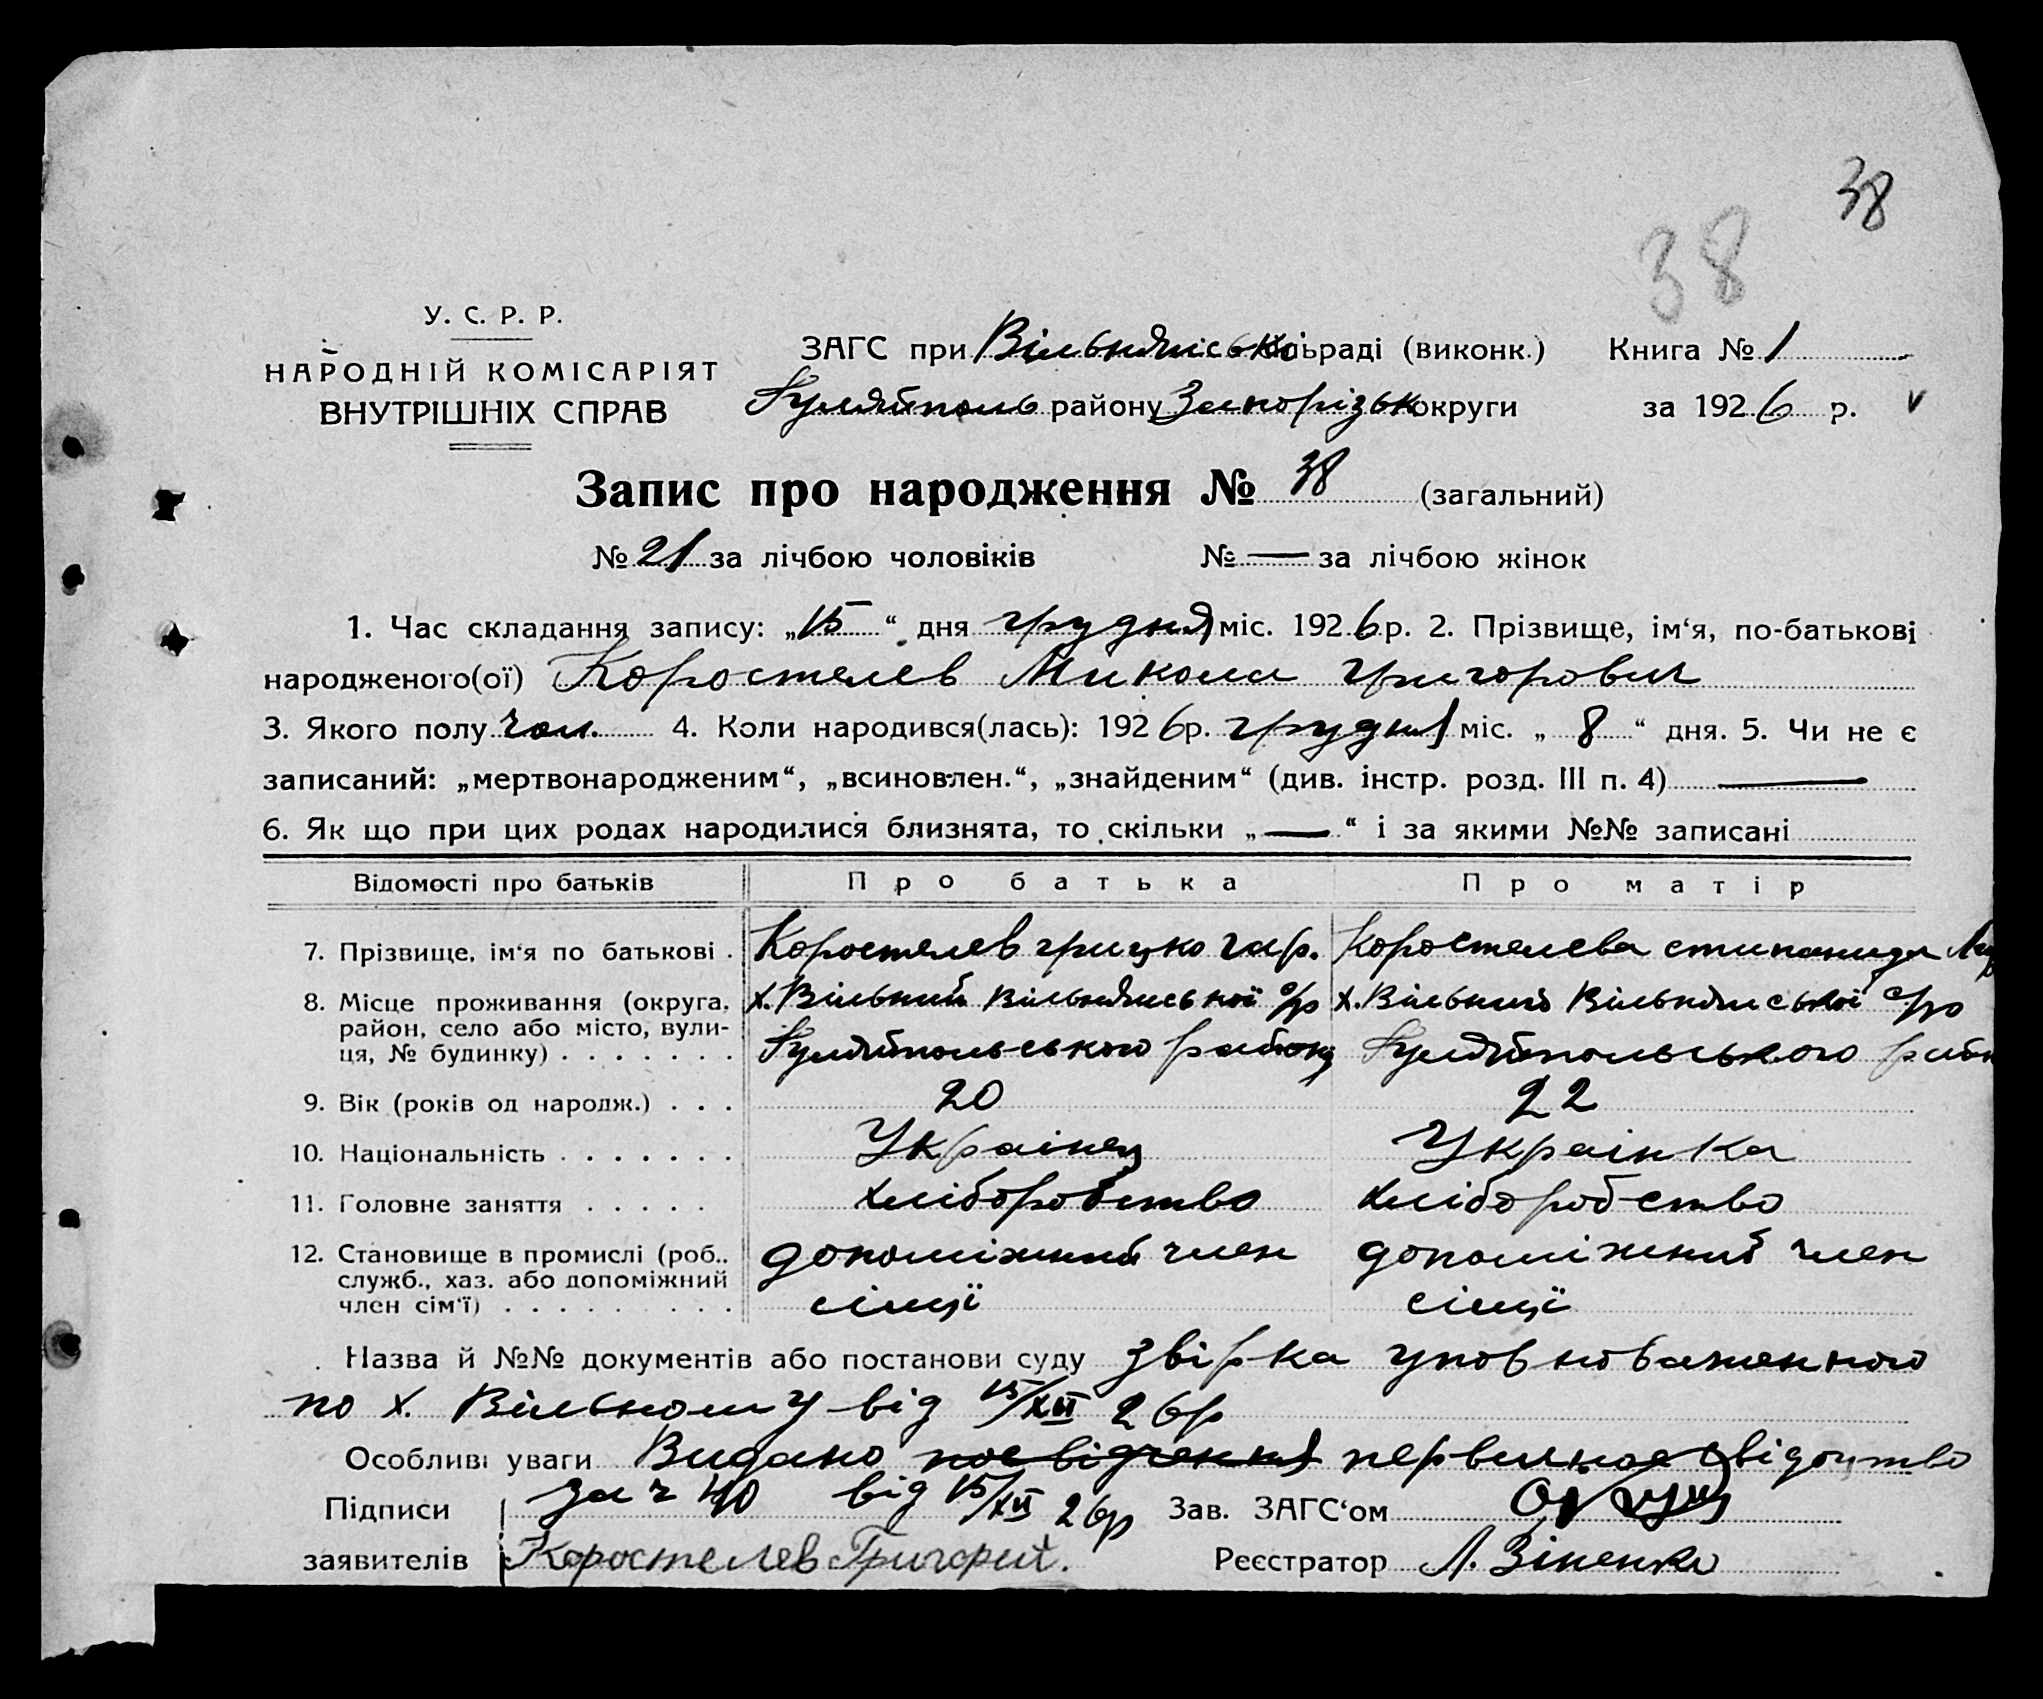 38
38
У. С. Р. Р.
НАРОДНІЙ КОМІСАРІЯТ
ВНУТРІШНІХ СПРАВ
ЗАГС при Вільнянській раді (виконк.) Книга № 1
Гуляйполь району Запорізьк округи за 1926 р. v
Запис про народження № 38 (загальний)
№ 21 за лічбою чоловіків № — за лічбою жінок
1. Час складання запису: „15“ дня грудня міс. 1926 р. 2. Прізвище, ім'я, по-батькові
народженого(ої) Коростелев Микола Григорович
3. Якого полу чол. 4. Коли народився(лась): 1926 р. грудня міс. „8“ дня. 5. Чи не є
записаний: „мертвонародженим“, „всиновлен.“, „знайденим“ (див. інстр. розд. III п. 4) —
6. Як що при цих родах народилися близнята, то скільки „—“ і за якими №№ записані
Відомості про батьків Про батька Про матір
7. Прізвище, ім'я по батькові . Коростелев Грицко Гар. Коростелева Стипанида
8. Місце проживання (округа, х. Вільний Вільнянської с/р х. Вільний Вільнянської с/р
район, село або місто, вули-
ця, № будинку) . . . . . . . Гуляйпольського району Гуляйпольського райн
9. Вік (років од народж.) . . . 20 22
10. Національність . . . . . . . Украінец Украінка
11. Головне заняття . . . . . хліборобство хліборобство
12. Становище в промислі (роб., допоміжний член допоміжний член
служб., хаз. або допоміжний
член сім'ї) . . . . . . . . . сімї сімї
Назва й №№ документів або постанови суду звірка уповноваженного
по х. Вільному від 15/XII 26р
Особливі уваги Видано посвідчення первильное свідоцтво
за ч 40 від 15/XII 26р
Підписи Зав. ЗАГС'ом
заявителів Коростелев Григорий. Реєстратор Л. Зіненко